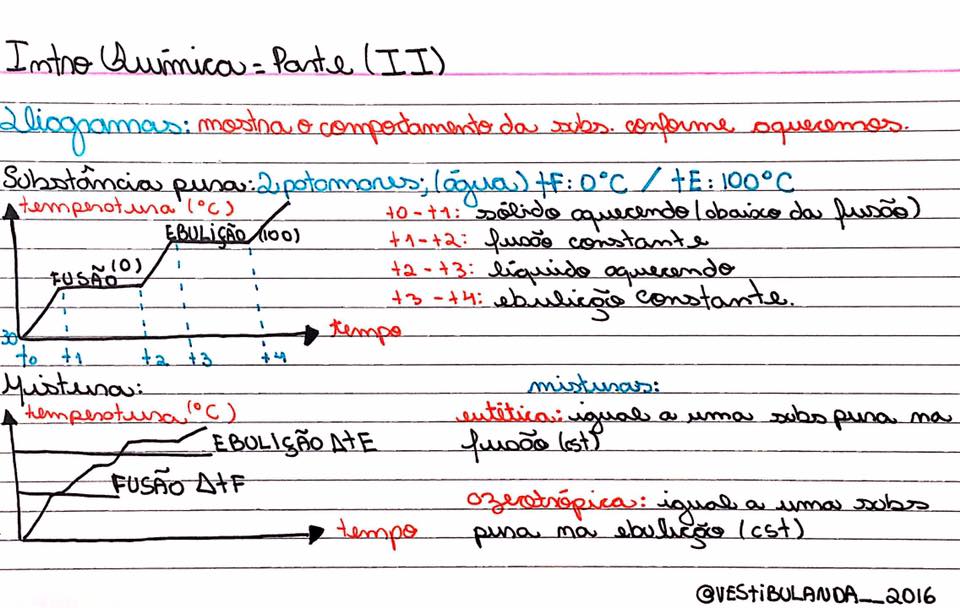 Intro Química = Parte (II)
Diagramas: mostra o comportamento da subs. conforme aquecemos.
Substância pura: 2 patamares; (água) tF: 0°C / tE: 100°C
temperatura (°C)
EBULIÇÃO (100)
FUSÃO (0)
t0 t1 t2 t3 t4
tempo
t0-t1: sólido aquecendo (abaixo da fusão)
t1-t2: fusão constante
t2-t3: líquido aquecendo
t3-t4: ebulição constante.
Mistura:
temperatura (°C)
EBULIÇÃO ΔtE
FUSÃO ΔtF
tempo
misturas:
eutética: igual a uma subs pura na
fusão (cst)
azeotrópica: igual a uma subs
pura na ebulição (cst)
@VESTIBULANDA__2016